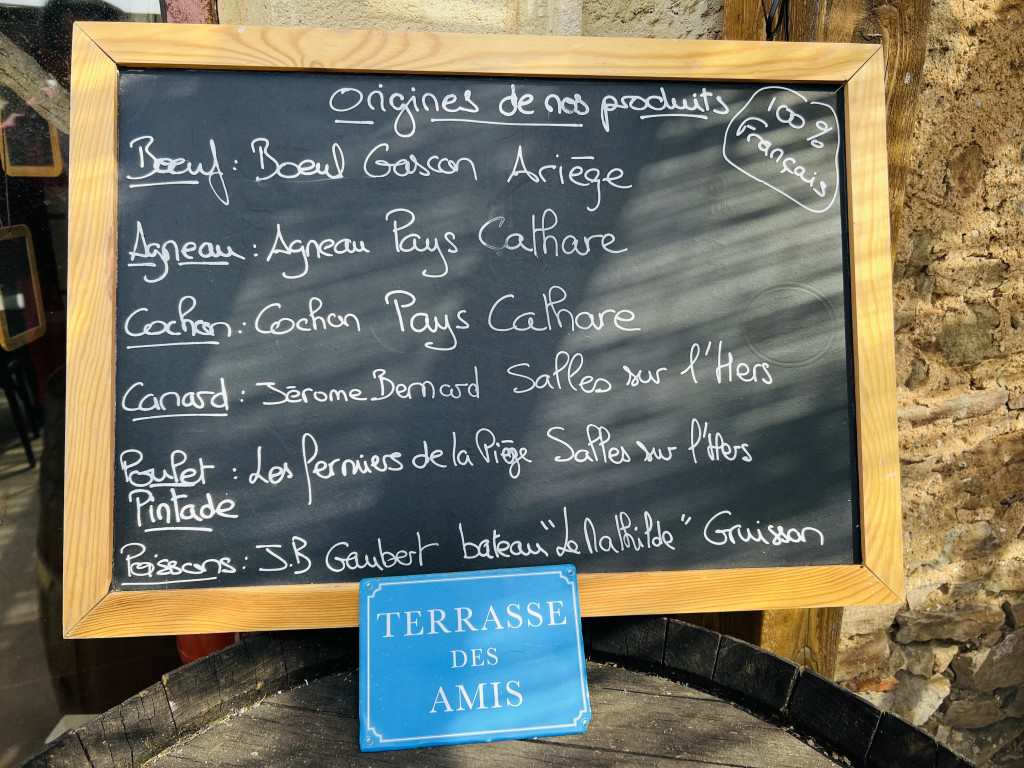 Origines de nos produits
100%
Français
Boeuf : Boeuf Gascon Ariège
Agneau : Agneau Pays Cathare
Cochon : Cochon Pays Cathare
Canard : Jérome Bernard Salles sur l'Hers
Poulet : Les fermiers de la Piège Salles sur l'Hers
Pintade
Poissons : J.B Gaubert bateau "Le Mathilde" Gruissan
TERRASSE
DES
AMIS